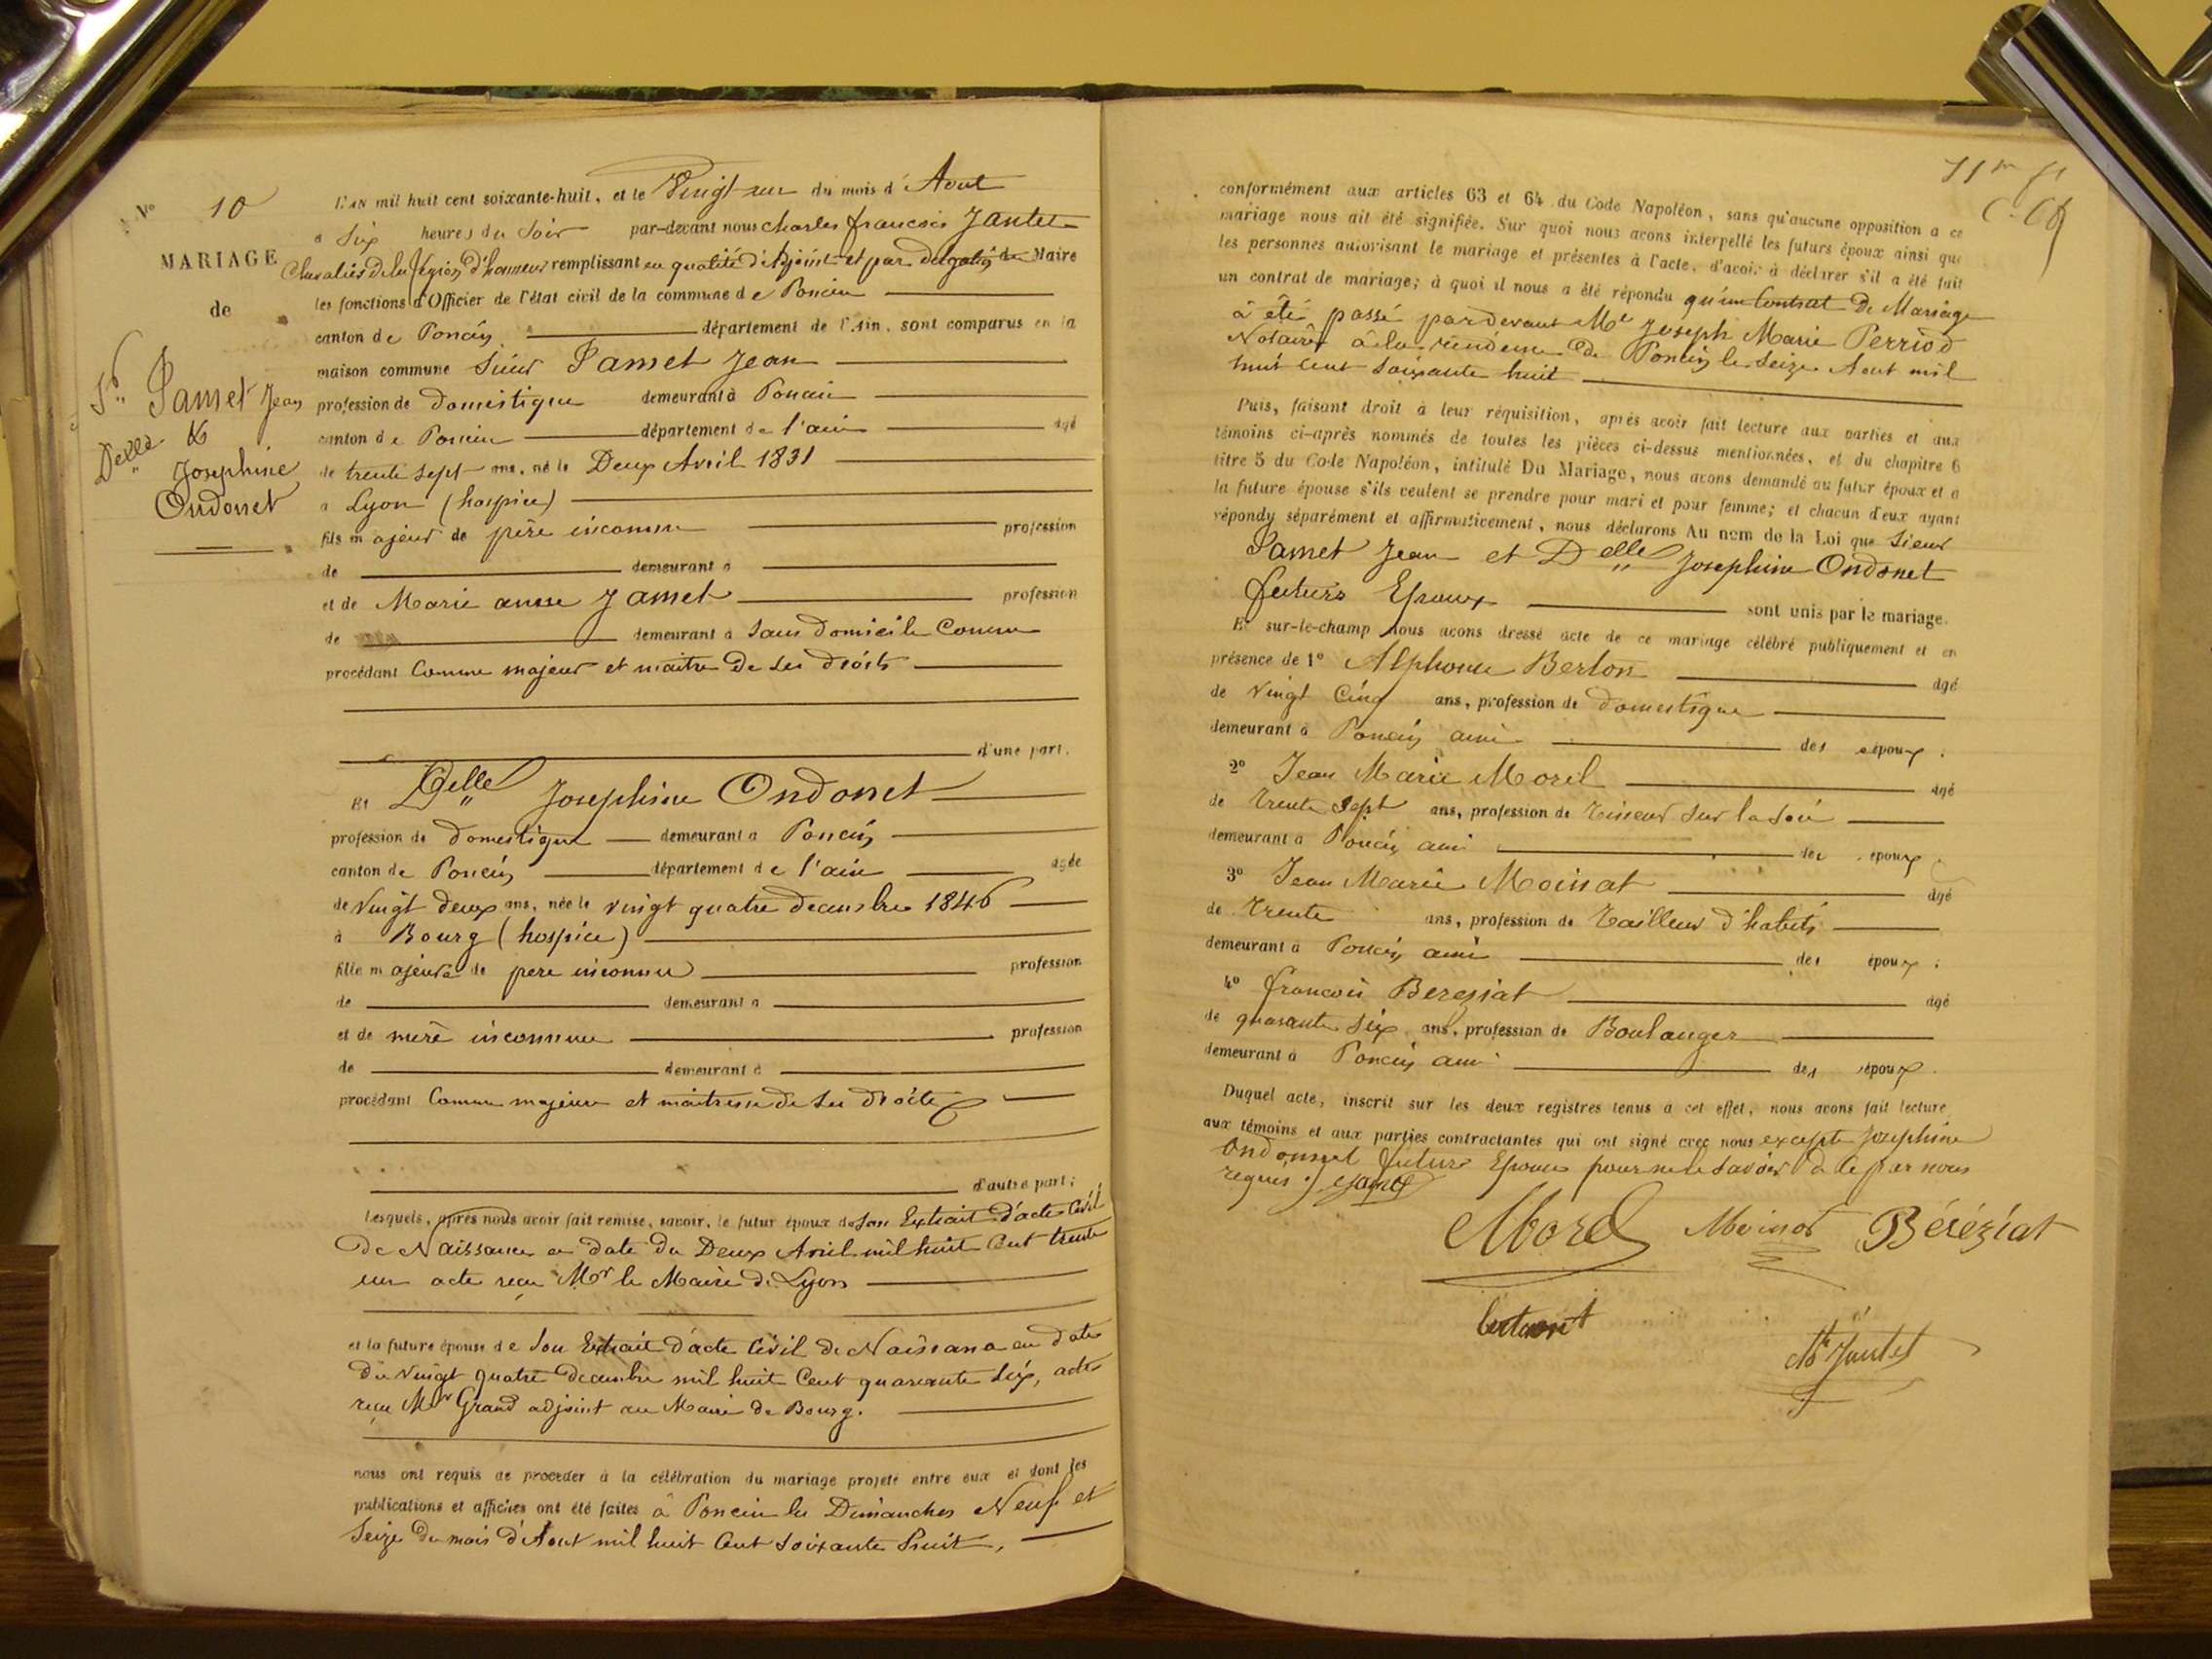 N° 10
MARIAGE
de
Sr Jamet Jean
&
Delle Josephine
Ondonet
L'AN mil huit cent soixante-huit, et le Vingt un du mois d'Aout
a Six heures du Soir par-devant nous Charles francois Jantet
Chevalier de la Légion d'honneur remplissant en qualité d'Adjoint et par délégation de Maire
les fonctions d'Officier de l'état civil de la commune de Poncin
canton de Poncin département de l'Ain, sont comparus en la
maison commune Sieur Jamet Jean
profession de domestique demeurant à Poncin
canton de Poncin département de l'ain âgé
de trente sept ans, né le Deux Avril 1831
a Lyon (hospice)
fils majeur de père inconnu profession
de demeurant à
et de Marie anne Jamet profession
de demeurant à Sans domicile Connu
procédant Comme majeur et maitre De Ses droits
d'une part.
Et Delle Josephine Ondonet
profession de domestique demeurant a Poncin
canton de Poncin département de l'ain agée
de Vingt deux ans, née le vingt quatre decembre 1846
à Bourg (hospice)
fille majeure de pere inconnu profession
de demeurant a
et de mère inconnue profession
de demeurant à
procédant Comme majeure et maitresse de Ses droits
d'autre part;
Lesquels, après nous avoir fait remise, savoir, le futur époux de Son Extrait d'acte Civil
De Naissance en date du Deux Avril mil huit Cent trente
un acte reçu Mr le Maire de Lyon
et la future épouse de Son Extrait d'acte Civil de Naissance en date
du Vingt quatre decembre mil huit Cent quarante Six, acte
reçu Mr Grand adjoint au Maire de Bourg.
nous ont requis de procéder à la célébration du mariage projeté entre eux et dont les
publications et affiches ont été faites à Poncin les Dimanches Neuf et
Seize du mois d'Aout mil huit Cent Soixante huit,
conformément aux articles 63 et 64 du Code Napoléon, sans qu'aucune opposition a ce
mariage nous ait été signifiée. Sur quoi nous avons interpellé les futurs époux ainsi que
les personnes autorisant le mariage et présentes à l'acte, d'avoir à déclarer s'il a été fait
un contrat de mariage; à quoi il nous a été répondu qu'un Contrat De Mariage
à été passé pardevant Me Joseph Marie Perriod
Notaire à la résidence de Poncin le Seize Aout mil
huit Cent Soixante huit
Puis, faisant droit à leur réquisition, après avoir fait lecture aux parties et aux
témoins ci-après nommés de toutes les pièces ci-dessus mentionnées, et du chapitre 6
titre 5 du Code Napoléon, intitulé Du Mariage, nous avons demandé au futur époux et a
la future épouse s'ils veulent se prendre pour mari et pour femme; et chacun d'eux ayant
répondu séparément et affirmativement, nous déclarons Au nom de la Loi que Sieur
Jamet Jean et Delle Josephine Ondonet
futurs Epoux sont unis par le mariage.
Et sur-le-champ nous avons dressé acte de ce mariage célébré publiquement et en
présence de 1° Alphonse Berlon âgé
de Vingt Cinq ans, profession de domestique
demeurant à Poncin ami des époux.
2° Jean Marie Morel âgé
de trente Sept ans, profession de tisseur Sur la Soie
demeurant a Poncin ami des époux
3° Jean Marie Moinat âgé
de trente ans, profession de Tailleur d'habits
demeurant à Poncin ami des époux;
4° francois Bereziat âgé
de quarante Six ans, profession de Boulanger
demeurant à Poncin ami des époux.
Duquel acte, inscrit sur les deux registres tenus à cet effet, nous avons fait lecture
aux témoins et aux parties contractantes qui ont signé avec nous excepté Josephine
Ondonnet future Epouse pour ne le Savoir de ce par nous
requis. Jamet
Morel Moinat Béréziat
Jantet